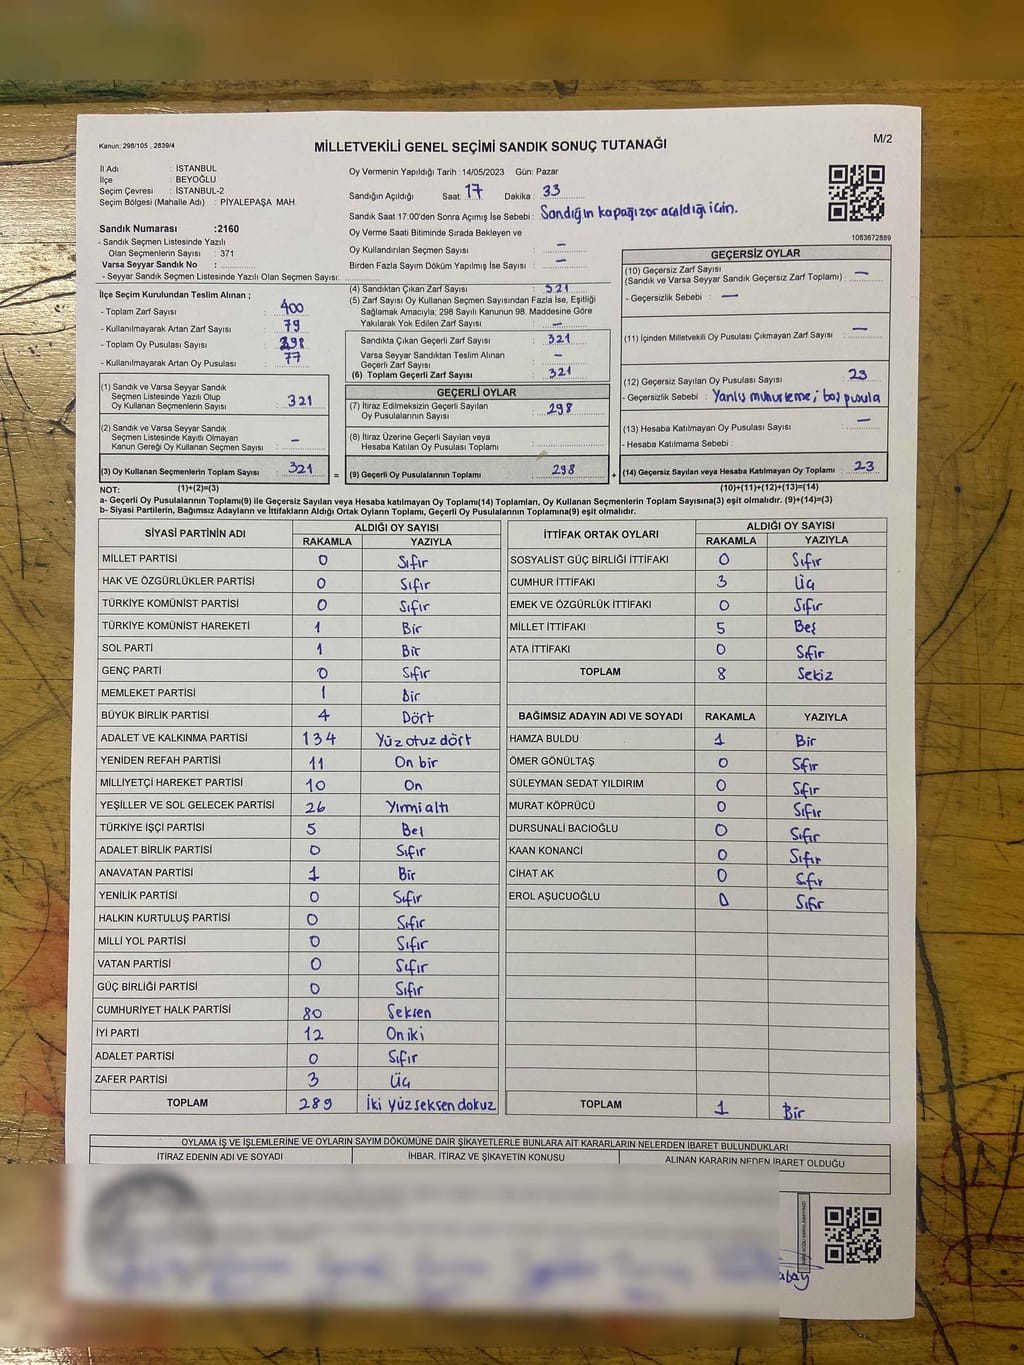 Kanun: 298/105 , 2839/4
MİLLETVEKİLİ GENEL SEÇİMİ SANDIK SONUÇ TUTANAĞI
M/2
İl Adı : İSTANBUL
İlçe : BEYOĞLU
Seçim Çevresi : İSTANBUL-2
Seçim Bölgesi (Mahalle Adı) : PİYALEPAŞA MAH.
Oy Vermenin Yapıldığı Tarih : 14/05/2023 Gün: Pazar
Sandığın Açıldığı Saat: 17 Dakika : 33
Sandık Saat 17:00'den Sonra Açımış İse Sebebi : Sandığın kapağı zor açıldığı için.
Sandık Numarası :2160
- Sandık Seçmen Listesinde Yazılı
Olan Seçmenlerin Sayısı : 371
Varsa Seyyar Sandık No :
- Seyyar Sandık Seçmen Listesinde Yazılı Olan Seçmen Sayısı:
Oy Verme Saati Bitiminde Sırada Bekleyen ve
Oy Kullandırılan Seçmen Sayısı : –
Birden Fazla Sayım Döküm Yapılmış İse Sayısı : –
1083672889
İlçe Seçim Kurulundan Teslim Alınan ;
- Toplam Zarf Sayısı : 400
- Kullanılmayarak Artan Zarf Sayısı : 79
- Toplam Oy Pusulası Sayısı : 398
- Kullanılmayarak Artan Oy Pusulası : 77
(1) Sandık ve Varsa Seyyar Sandık
Seçmen Listesinde Yazılı Olup
Oy Kullanan Seçmenlerin Sayısı : 321
(2) Sandık ve Varsa Seyyar Sandık
Seçmen Listesinde Kayıtlı Olmayan
Kanun Gereği Oy Kullanan Seçmen Sayısı : –
(3) Oy Kullanan Seçmenlerin Toplam Sayısı : 321
(4) Sandıktan Çıkan Zarf Sayısı : 321
(5) Zarf Sayısı Oy Kullanan Seçmen Sayısından Fazla İse, Eşitliği
Sağlamak Amacıyla; 298 Sayılı Kanunun 98. Maddesine Göre
Yakılarak Yok Edilen Zarf Sayısı : –
Sandıkta Çıkan Geçerli Zarf Sayısı : 321
Varsa Seyyar Sandıktan Teslim Alınan
Geçerli Zarf Sayısı : –
(6) Toplam Geçerli Zarf Sayısı : 321
GEÇERLİ OYLAR
(7) İtiraz Edilmeksizin Geçerli Sayılan
Oy Pusulalarının Sayısı : 298
(8) İtiraz Üzerine Geçerli Sayılan veya
Hesaba Katılan Oy Pusulası Toplamı :
= (9) Geçerli Oy Pusulalarının Toplamı : 298
GEÇERSİZ OYLAR
(10) Geçersiz Zarf Sayısı
(Sandık ve Varsa Seyyar Sandık Geçersiz Zarf Toplamı) : –
- Geçersizlik Sebebi : –
(11) İçinden Milletvekili Oy Pusulası Çıkmayan Zarf Sayısı : –
(12) Geçersiz Sayılan Oy Pusulası Sayısı : 23
- Geçersizlik Sebebi : Yanlış mühürleme; boş pusula
(13) Hesaba Katılmayan Oy Pusulası Sayısı : –
- Hesaba Katılmama Sebebi :
+ (14) Geçersiz Sayılan veya Hesaba Katılmayan Oy Toplamı : 23
NOT: (1)+(2)=(3)
(10)+(11)+(12)+(13)=(14)
a- Geçerli Oy Pusulalarının Toplamı(9) ile Geçersiz Sayılan veya Hesaba katılmayan Oy Toplamı(14) Toplamları, Oy Kullanan Seçmenlerin Toplam Sayısına(3) eşit olmalıdır. (9)+(14)=(3)
b- Siyasi Partilerin, Bağımsız Adayların ve İttifakların Aldığı Ortak Oyların Toplamı, Geçerli Oy Pusulalarının Toplamına(9) eşit olmalıdır.
SİYASİ PARTİNİN ADI ALDIĞI OY SAYISI
RAKAMLA YAZIYLA
MİLLET PARTİSİ 0 Sıfır
HAK VE ÖZGÜRLÜKLER PARTİSİ 0 Sıfır
TÜRKİYE KOMÜNİST PARTİSİ 0 Sıfır
TÜRKİYE KOMÜNİST HAREKETİ 1 Bir
SOL PARTİ 1 Bir
GENÇ PARTİ 0 Sıfır
MEMLEKET PARTİSİ 1 Bir
BÜYÜK BİRLİK PARTİSİ 4 Dört
ADALET VE KALKINMA PARTİSİ 134 Yüz otuz dört
YENİDEN REFAH PARTİSİ 11 On bir
MİLLİYETÇİ HAREKET PARTİSİ 10 On
YEŞİLLER VE SOL GELECEK PARTİSİ 26 Yirmi altı
TÜRKİYE İŞÇİ PARTİSİ 5 Beş
ADALET BİRLİK PARTİSİ 0 Sıfır
ANAVATAN PARTİSİ 1 Bir
YENİLİK PARTİSİ 0 Sıfır
HALKIN KURTULUŞ PARTİSİ 0 Sıfır
MİLLİ YOL PARTİSİ 0 Sıfır
VATAN PARTİSİ 0 Sıfır
GÜÇ BİRLİĞİ PARTİSİ 0 Sıfır
CUMHURİYET HALK PARTİSİ 80 Seksen
İYİ PARTİ 12 On iki
ADALET PARTİSİ 0 Sıfır
ZAFER PARTİSİ 3 Üç
TOPLAM 289 İki yüz seksen dokuz
İTTİFAK ORTAK OYLARI ALDIĞI OY SAYISI
RAKAMLA YAZIYLA
SOSYALİST GÜÇ BİRLİĞİ İTTİFAKI 0 Sıfır
CUMHUR İTTİFAKI 3 Üç
EMEK VE ÖZGÜRLÜK İTTİFAKI 0 Sıfır
MİLLET İTTİFAKI 5 Beş
ATA İTTİFAKI 0 Sıfır
TOPLAM 8 Sekiz
BAĞIMSIZ ADAYIN ADI VE SOYADI RAKAMLA YAZIYLA
HAMZA BULDU 1 Bir
ÖMER GÖNÜLTAŞ 0 Sıfır
SÜLEYMAN SEDAT YILDIRIM 0 Sıfır
MURAT KÖPRÜCÜ 0 Sıfır
DURSUNALİ BACIOĞLU 0 Sıfır
KAAN KONANCİ 0 Sıfır
CİHAT AK 0 Sıfır
EROL AŞUCUOĞLU 0 Sıfır
TOPLAM 1 Bir
OYLAMA İŞ VE İŞLEMLERİNE VE OYLARIN SAYIM DÖKÜMÜNE DAİR ŞİKAYETLERLE BUNLARA AİT KARARLARIN NELERDEN İBARET BULUNDUKLARI
İTİRAZ EDENİN ADI VE SOYADI İHBAR, İTİRAZ VE ŞİKAYETİN KONUSU ALINAN KARARIN NEDEN İBARET OLDUĞU